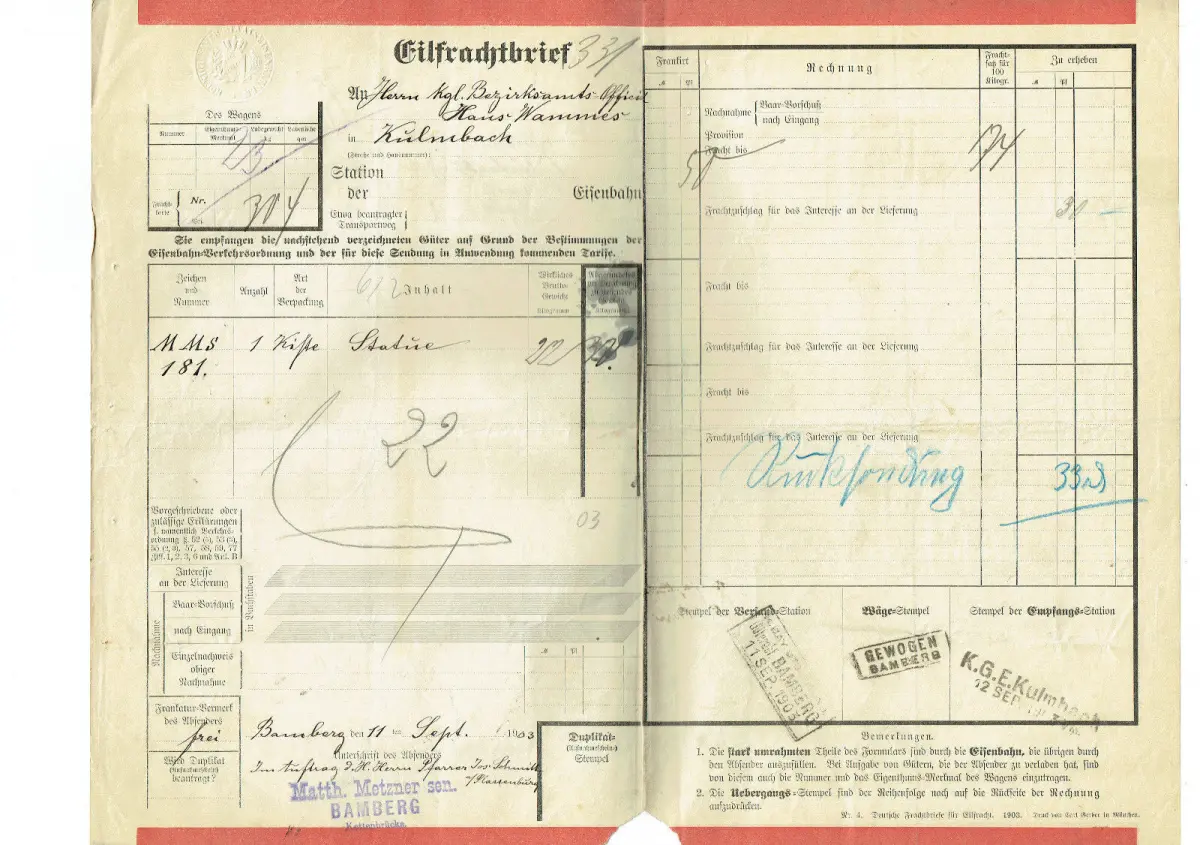 Eilfrachtbrief
331
An Herrn Kgl. Bezirksamts-Offici
Hans Wammes
in Kulmbach
(Straße und Hausnummer):
Station
der Eisenbahn
Etwa beantragter
Transportweg
Des Wagens
Nummer
Eigenthums-Merkmal
Ladegewicht
23
Nr.
304
Sie empfangen die nachstehend verzeichneten Güter auf Grund der Bestimmungen der
Eisenbahn-Verkehrsordnung und der für diese Sendung in Anwendung kommenden Tarife.
Zeichen
und
Nummer
Anzahl
Art
der
Verpackung
Inhalt
Wirkliches
Brutto-
Gewicht
Kilogramm
MMS 1 Kiste Statue 22
181.
22
03
Vorgeschriebene oder
zulässige Erklärungen
Interesse
an der Lieferung
Nachnahme
Baar-Vorschuß
nach Eingang
in Buchstaben
Einzelnachweis
obiger
Nachnahme
Frankatur-Vermerk
des Absenders
frei
Wird Duplikat
beantragt?
Bamberg den 11 ten Sept. 1903
Unterschrift des Absenders
Im Auftrag d. H. Herrn Pfarrer Jos. Schmitt
Matth. Metzner sen.
BAMBERG
Kettenbrücke.
Duplikat-
Stempel
Frankirt
Rechnung
Fracht-
satz für
100
Kilogr.
Zu erheben
Nachnahme
Baar-Vorschuß
nach Eingang
Provision
Fracht bis
50
174
Frachtzuschlag für das Interesse an der Lieferung
30 —
Fracht bis
Frachtzuschlag für das Interesse an der Lieferung
Fracht bis
Frachtzuschlag für das Interesse an der Lieferung
Rücksendung
Stempel der Versand-Station
Wäge-Stempel
Stempel der Empfangs-Station
BAMBERG
11 SEP. 1903
GEWOGEN
BAMBERG
K.G.E. Kulmbach
12 SEP.
Bemerkungen.
1. Die stark umrahmten Theile des Formulars sind durch die Eisenbahn, die übrigen durch
den Absender auszufüllen. Bei Aufgabe von Gütern, die der Absender zu verladen hat, sind
von diesem auch die Nummer und das Eigenthums-Merkmal des Wagens einzutragen.
2. Die Uebergangs-Stempel sind der Reihenfolge nach auf die Rückseite der Rechnung
aufzudrücken.
Nr. 4. Deutsche Frachtbriefe für Eilfracht. 1903. Druck von Carl Gerber in München.